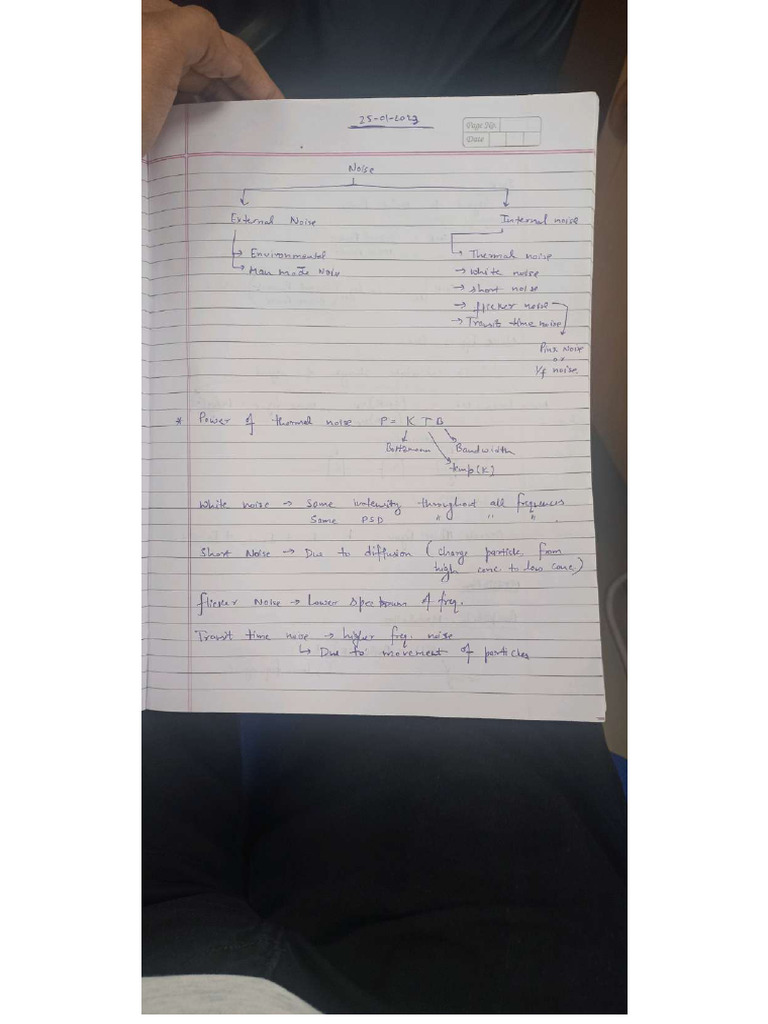 25-01-2023
Page No.
Date
Noise
External Noise
Internal noise
→ Environmental
→ Man made Noise
→ Thermal noise
→ White noise
→ short noise
→ flicker noise
→ Transit time noise
Pink Noise
or
1/f noise.
* Power of thermal noise P = K T B
Boltzmann
Bandwidth
temp(K)
White noise → Same intensity throughout all frequencies
Same PSD " " " .
Short Noise → Due to diffusion (charge particle from
high conc. to low conc.)
flicker Noise → Lower spectrum of freq.
Transit time noise → higher freq. noise
↳ Due to movement of particles